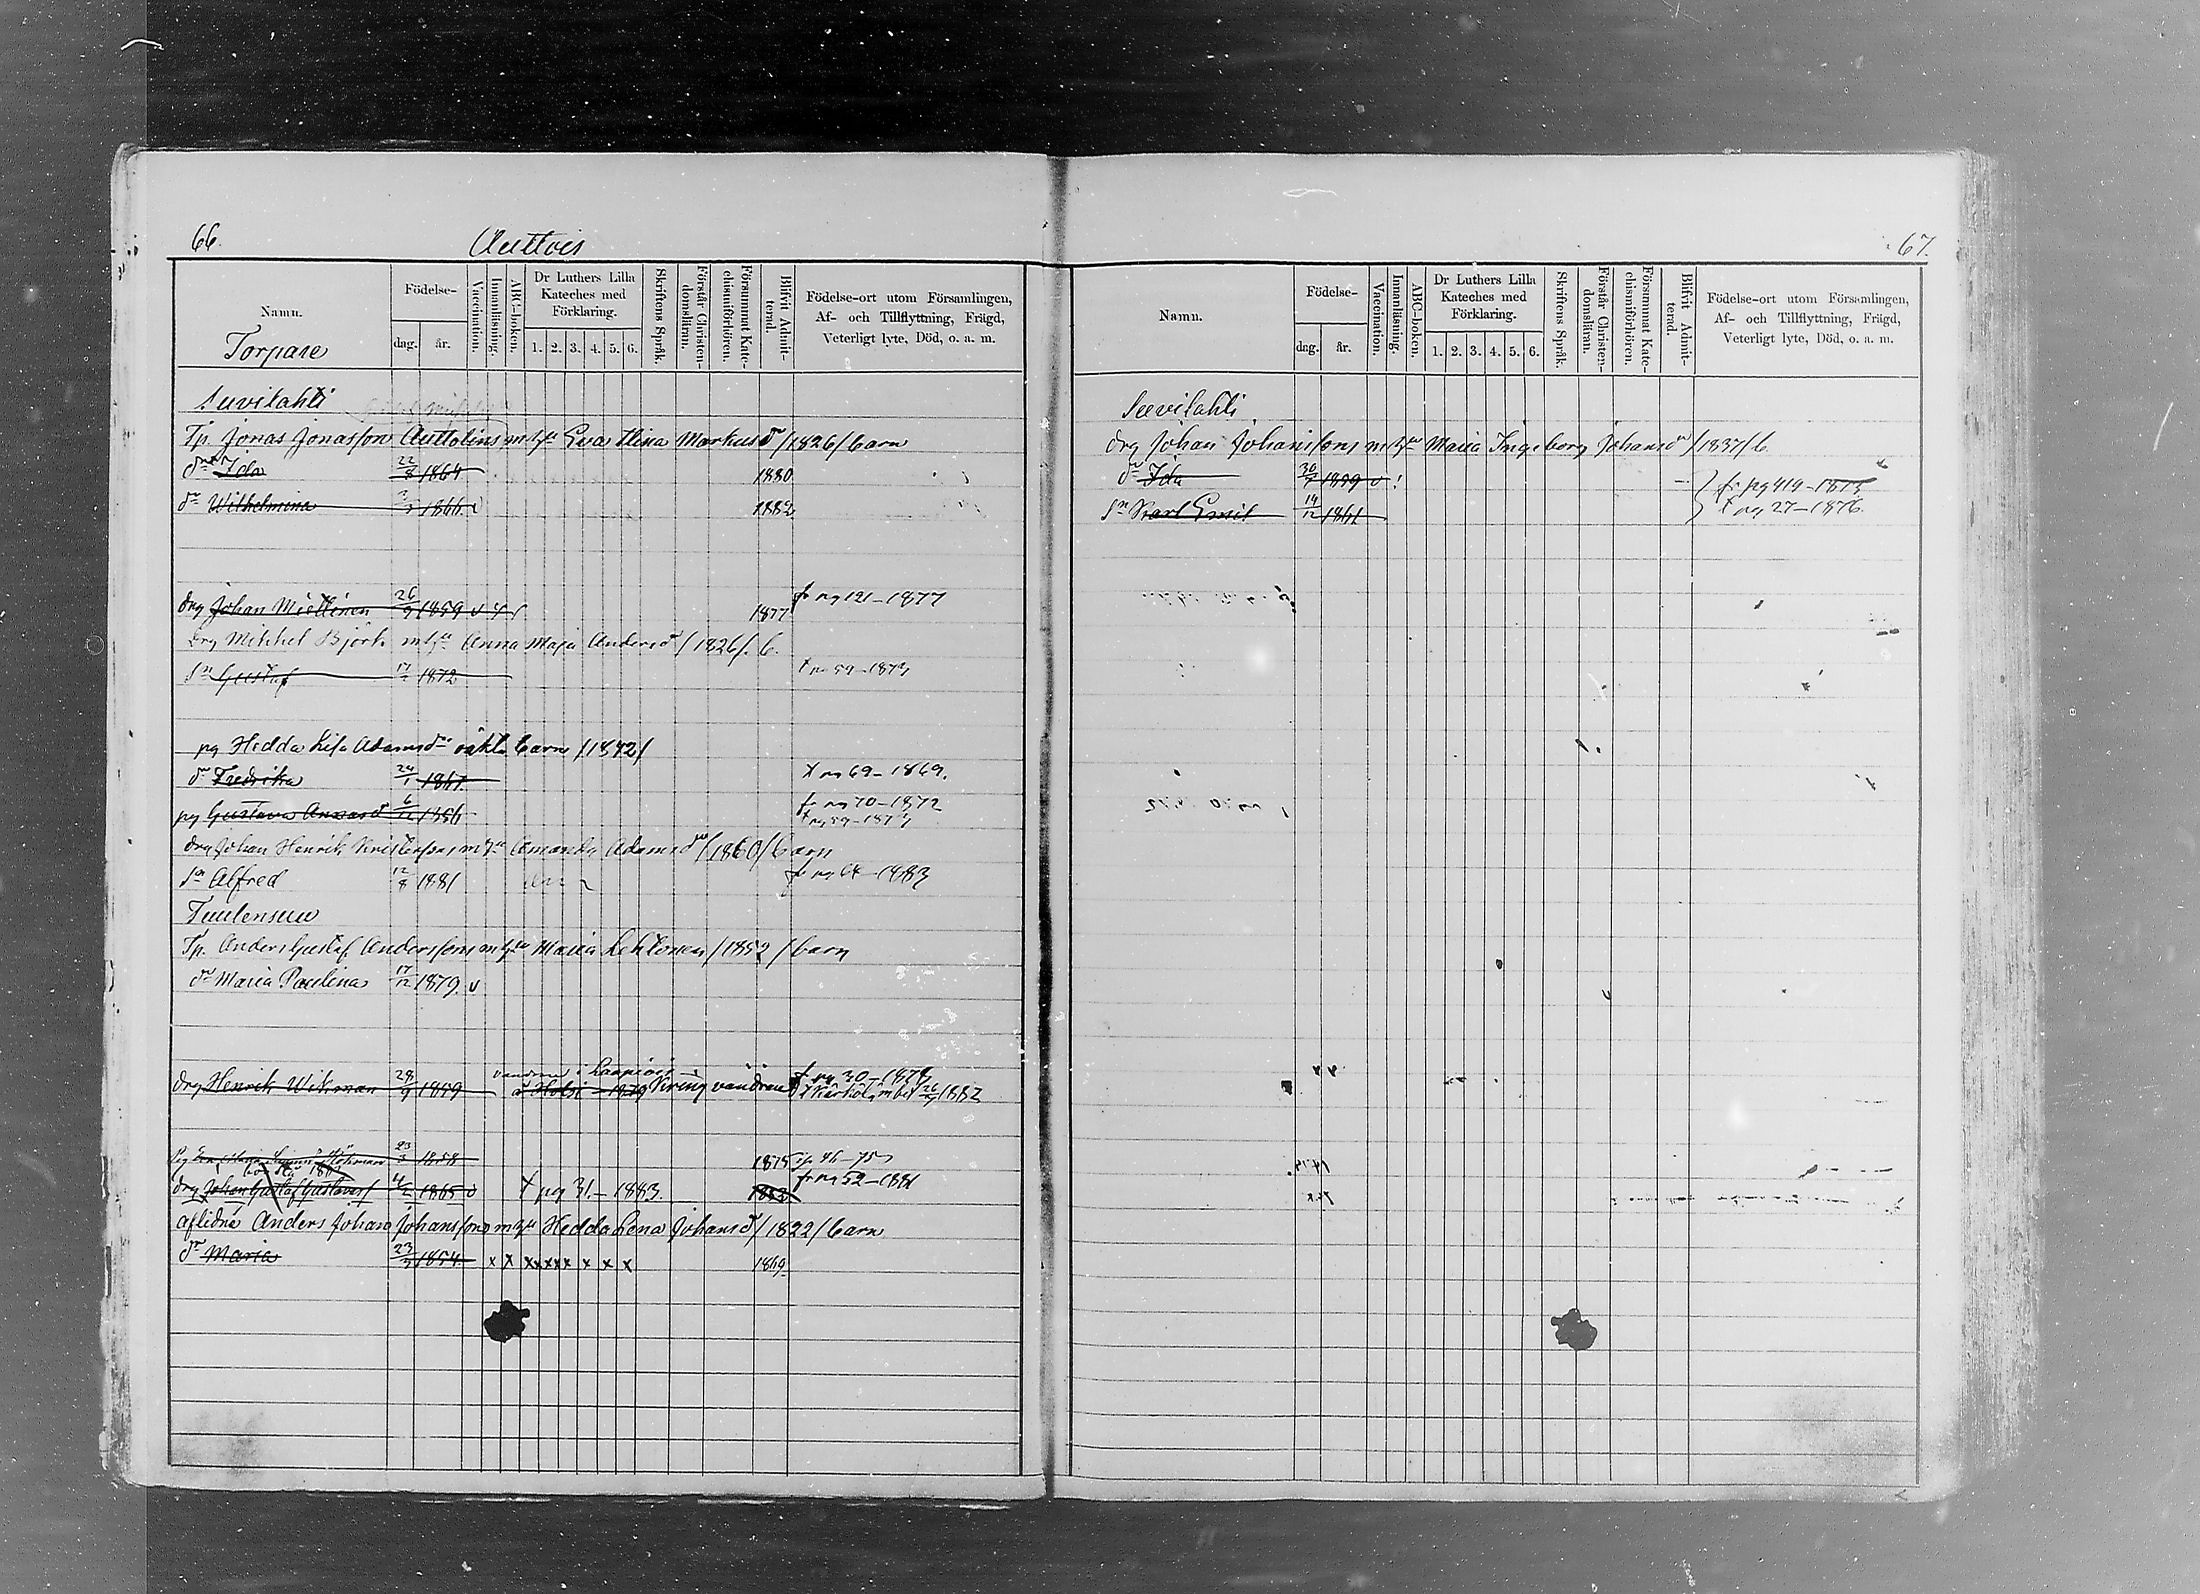 66.
Auttois
Namn.
Födelse-
dag.
år.
Vaccination.
Innanläsning.
ABC-boken.
Dr Luthers Lilla
Kateches med
Förklaring.
1. 2. 3. 4. 5. 6.
Skriftens Språk.
Förstår Christen-
domsläran.
Försummat Kate-
chismiförhören.
Blifvit Admit-
terad.
Födelse-ort utom Församlingen,
Af- och Tillflyttning, Frägd,
Veterligt lyte, Död, o. a. m.
Torpare
Suvilahti
Tp. Jonas Jonasson Auttolins m hu Eva Stina Markus dr /1826/ barn
dr Ida 22/8 1864 1880
dr Wilhelmina 1866 v 1882
drg Johan Miettinen 26/9 1859 v 1877 fr pg 121-1877
Drg Mikkel Björk m hu Anna Maja Anders dr /1826/ b.
sn Gustaf 1872 59-1873
pg Hedda Lisa Adams dr oäkta barn /1842/
dr Fredrika 24/1 1867. x pg 69-1869.
pg Gustava 6/12 1856 fr pg 70-1872
x pg 59-1873
drg Johan Henrik Kristersons m hu Amanda Adams dr /1860/ barn
sn Alfred 12/8 1881 fr pg 64-1883
Tuulensuu
Tp. Anders Gustaf Anderssons m hu Maria Lehtonen /1852/ barn
dr Maria Paulina 17/12 1879. v
drg Henrik Wikman 28/9 1859 Kring vandrand fr pg 30-
1882
1858 1875 ifr 46-75
drg Johan Gustaf Gustavss 4/2 1865 v x pg 31.-1883. 1882 fr pg 52-1881
aflidne Anders Johan Johanssons m hu Hedda Lena Johans dr /1822/ barn
dr Maria 23/3 1854 x x xxxxx x x x 1869.
67.
Namn.
Födelse-
dag.
år.
Vaccination.
Innanläsning.
ABC-boken.
Dr Luthers Lilla
Kateches med
Förklaring.
1. 2. 3. 4. 5. 6.
Skriftens Språk.
Förstår Christen-
domsläran.
Försummat Kate-
chismiförhören.
Blifvit Admit-
terad.
Födelse-ort utom Församlingen,
Af- och Tillflyttning, Frägd,
Veterligt lyte, Död, o. a. m.
Suvilahti
drg Johan Johanssons m hu Maria Ingeborg Johans dr /1837/ b.
dr Ida 30/7 1859 v fr pg 419-1873
sn Karl Emil 14/12 1861 x pg 27-1876.